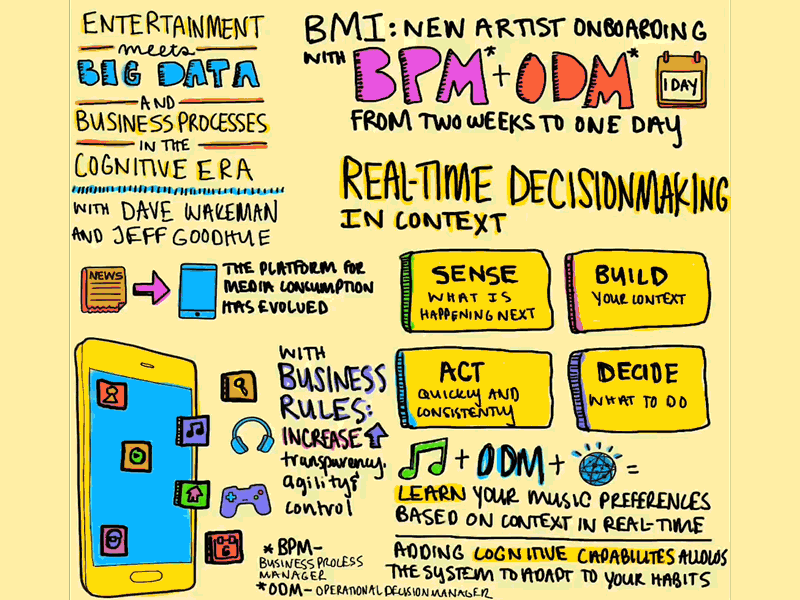 ENTERTAINMENT
meets
BIG DATA
AND
BUSINESS PROCESSES
IN THE
COGNITIVE ERA
WITH DAVE WAKEMAN
AND JEFF GOODHUE
BMI: NEW ARTIST ONBOARDING
WITH BPM* + ODM*
1 DAY
FROM TWO WEEKS TO ONE DAY
REAL-TIME DECISIONMAKING
IN CONTEXT
NEWS
THE PLATFORM FOR
MEDIA CONSUMPTION
HAS EVOLVED
SENSE
WHAT IS
HAPPENING NEXT
BUILD
YOUR CONTEXT
ACT
QUICKLY AND
CONSISTENTLY
DECIDE
WHAT TO DO
WITH
BUSINESS
RULES:
INCREASE
transparency,
agility &
control
6
* BPM-
BUSINESS PROCESS
MANAGER
* ODM- OPERATIONAL DECISION MANAGER
+ ODM + =
LEARN YOUR MUSIC PREFERENCES
BASED ON CONTEXT IN REAL-TIME
ADDING COGNITIVE CAPABILITES ALLOWS
THE SYSTEM TO ADAPT TO YOUR HABITS